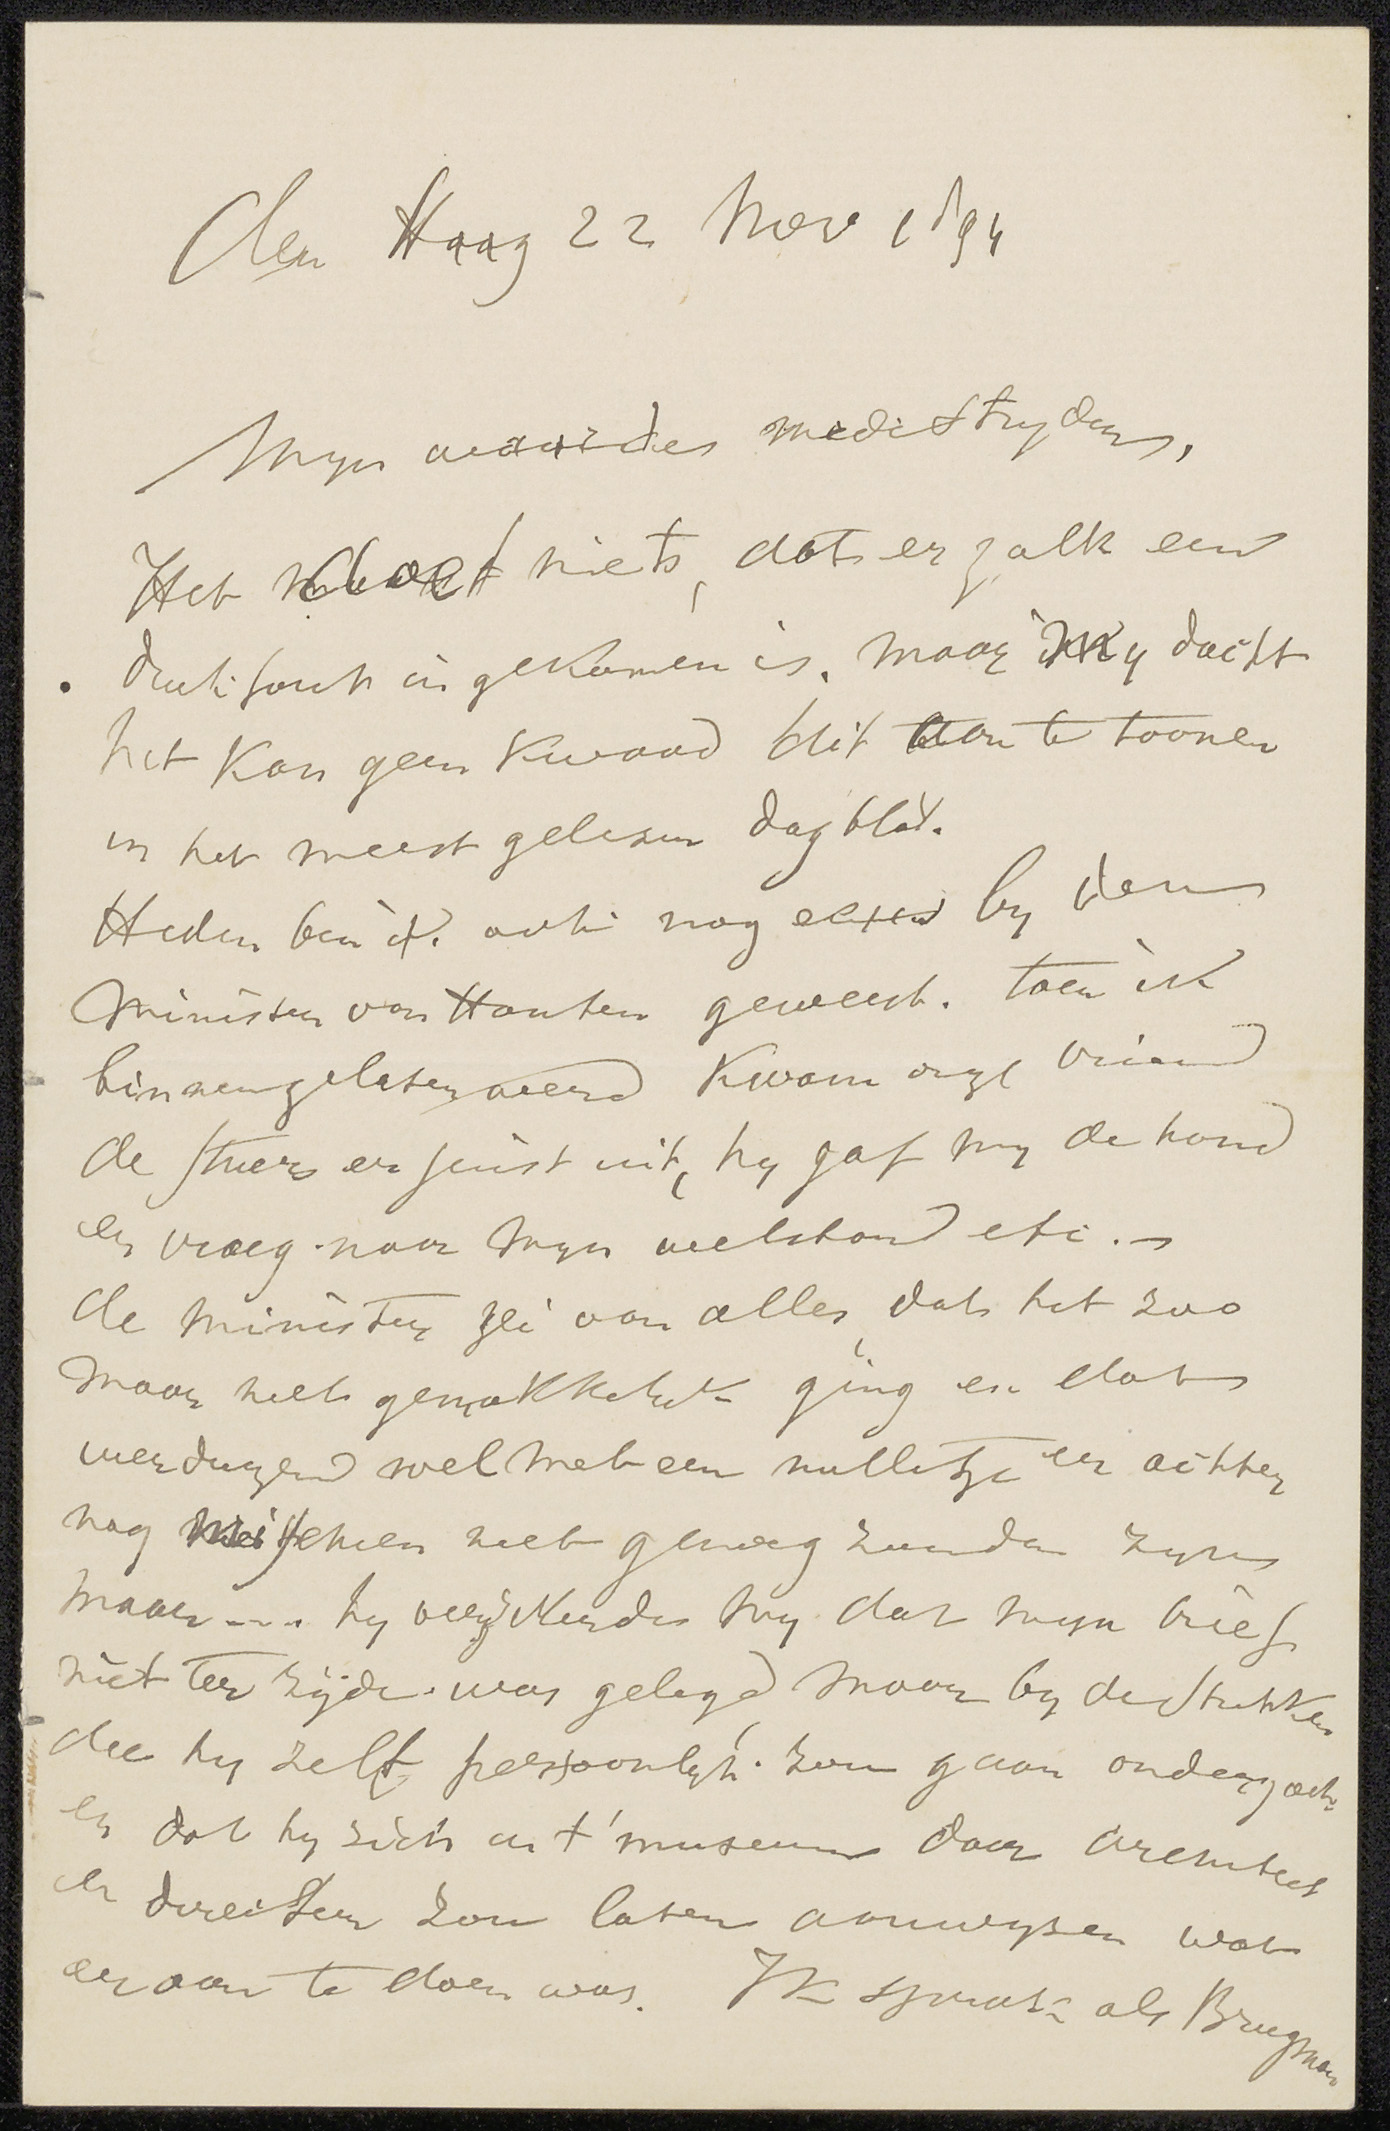 den Haag 22 Nov 1894
Myn waarde medestryder,
Het doet niets, dat er zulk een
drukfout in gekomen is, maar my dacht
het kan geen kwaad dit aan te toonen
in het meest gelezen dagblad.
Heden ben ik ook nog eens by den
Minister van Houten geweest. toen ik
binnengelaten werd kwam onze vriend
de Stuers er juist uit, hy gaf my de hand
en vroeg naar myn welstand etc. –
de minister zei van alles, dat het zoo
maar niet gemakkelyk ging en dat
vierduizend wel met een nulletje er achter
nog misschien niet genoeg zouden zyn
maar .... hy verzekerde my dat myn brief
niet ter zijde was gelegd, maar by de stukken
die hy zelf persoonlyk zou gaan onderzoek.
en dat hy zich in t' museum door architect
en directeur zou laten aanwyzen wat
er aan te doen was. Ik sprak als Brugman